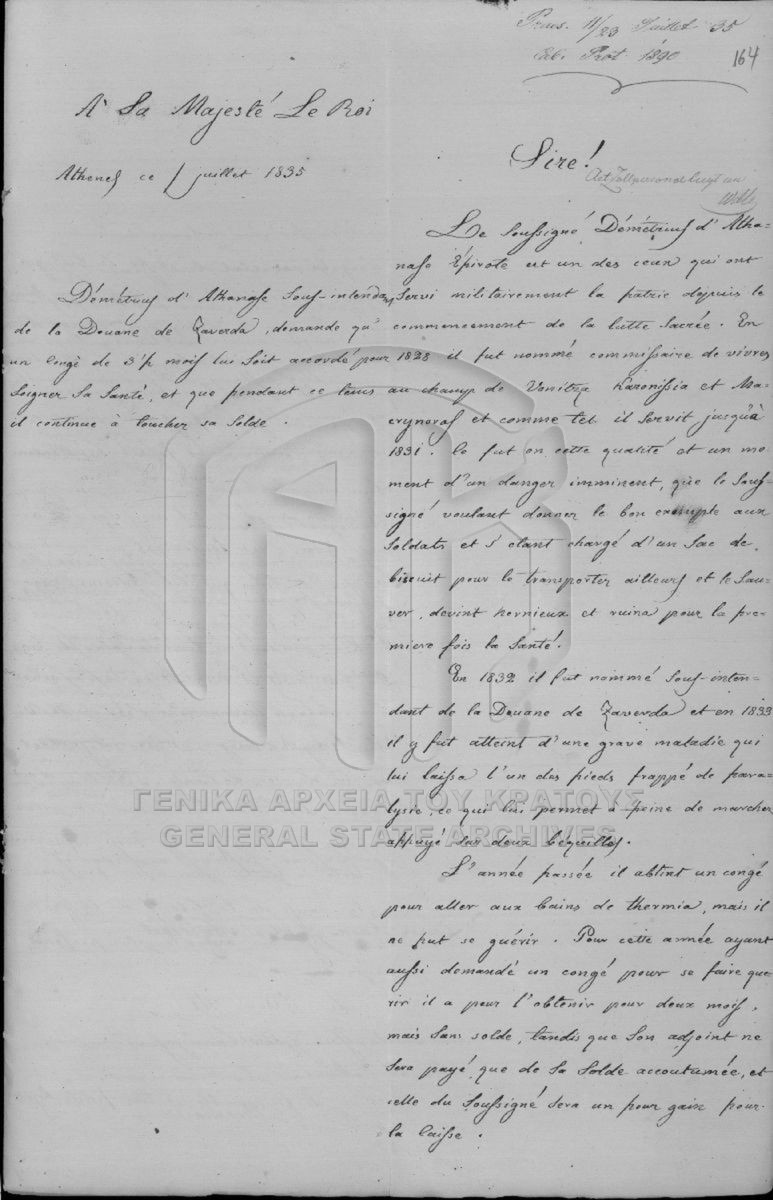 Praes. 11/23 Juillet 35
Prot 1890
164
A Sa Majesté Le Roi
Athenes ce juillet 1835
Démétrius d'Athanase Sous-intendant
de la Douane de Zaverda, demande qu'
un congé de mois lui soit accordé pour
soigner sa santé, et que pendant ce tems
il continue à toucher sa solde.
Sire!
Le Soussigné Démétrius d'Atha-
nase Épirote est un des ceux qui ont
servi militairement la patrie depuis le
commencement de la lutte sacrée. En
1828 il fut nommé commissaire de vivres
au champ de Vonitza Karonissia et Ma-
crynoras et comme tel il servit jusqu'à
1831. Ce fut en cette qualité et un mo-
ment d'un danger imminent, que le Sous-
signé voulant donner le bon exemple aux
soldats et s'etant chargé d'un Sac de
biscuit pour le transporter ailleurs et le sau-
ver, devint hernieux et ruina pour la pre-
miere fois la santé.
En 1832 il fut nommé sous-inten-
dant de la Douane de Zaverda et en 1833
il y fut atteint d'une grave maladie qui
lui laissa l'un des pieds frappé de para-
lysie, ce qui lui permet a peine de marcher
appuyé sur deux bequilles.
L'année passée il obtint un congé
pour aller aux bains de thermia, mais il
ne put se guérir. Pour cette année ayant
aussi demandé un congé pour se faire gue-
rir il a pour l'obtenir pour deux mois,
mais sans solde, tandis que son adjoint ne
sera payé que de sa solde accoutumée, et
celle du Soussigné sera un pour gain pour
la caisse.
ΓΕΝΙΚΑ ΑΡΧΕΙΑ ΤΟΥ ΚΡΑΤΟΥΣ
GENERAL STATE ARCHIVES